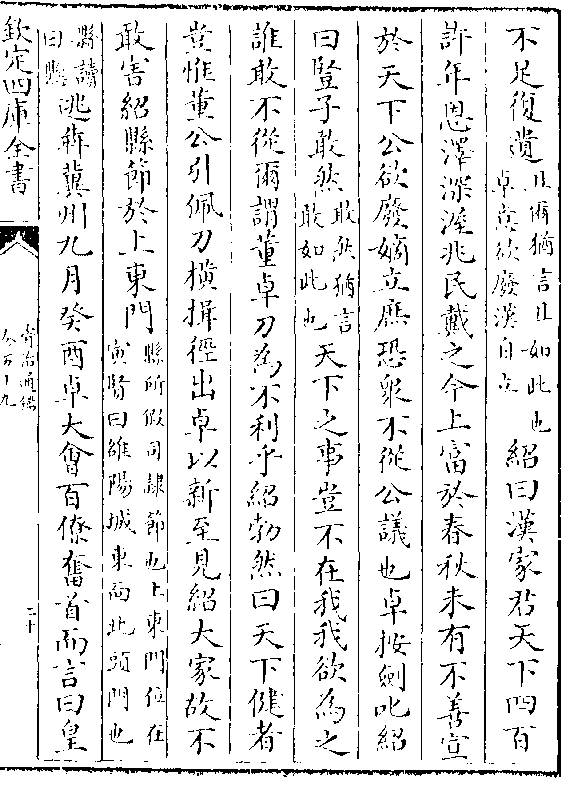 不足復遺且爾猶言且如此也
卓意欲廢漢自立紹曰漢家君天下四百
許年恩澤深渥兆民戴之今上富於春秋未有不善宣
於天下公欲廢嫡立庶恐衆不從公議也卓按劍叱紹
曰豎子敢然敢然猶言
敢如此也天下之事豈不在我我欲為之
誰敢不從爾謂董卓刀為不利乎紹勃然曰天下健者
豈惟董公引佩刀橫揖徑出卓以新至見紹大家故不
敢害紹縣節於上東門縣所假司隸節也上東門位在
寅賢曰雒陽城東面北頭門也
縣讀
曰懸逃奔冀州九月癸酉卓大會百僚奮首而言曰皇
欽定四庫全書
資治通鑑
卷五十九
二十